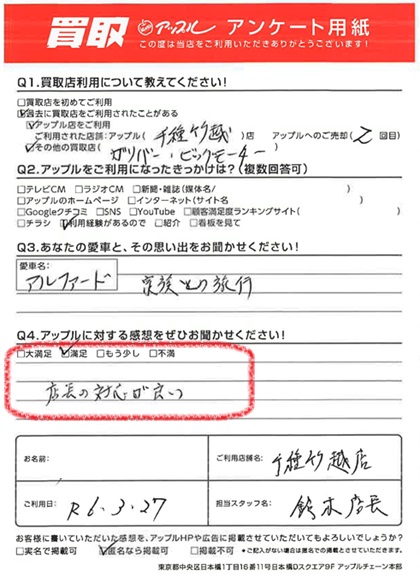 買取 アップル アンケート用紙
この度は当店をご利用いただきありがとうございます!
Q1.買取店利用について教えてください!
□買取店を初めてご利用
☑過去に買取店をご利用されたことがある
☑アップル店をご利用
ご利用された店舗:アップル(千種竹越)店 アップルへのご売却(2)回目
☑その他の買取店(ガリバー・ビックモーター)
Q2.アップルをご利用になったきっかけは?(複数回答可)
□テレビCM □ラジオCM □新聞・雑誌(媒体名/ )
□アップルのホームページ □インターネット(サイト名 )
□Googleクチコミ □SNS □YouTube □顧客満足度ランキングサイト( )
□チラシ ☑利用経験があるので □紹介 □看板を見て
Q3.あなたの愛車と、その思い出をお聞かせください!
愛車名:
アルファード 家族との旅行
Q4.アップルに対する感想をぜひお聞かせください!
□大満足 ☑満足 □もう少し □不満
店長の対応が良い
お名前: ご利用店舗名: 千種竹越店
ご利用日: R6.3.27 担当スタッフ名: 鈴木店長
お客様に書いていただいた感想を、アップルHPや広告に掲載させていただいてもよろしいでしょうか?
□実名で掲載可 ☑匿名なら掲載可 □掲載不可 *ご記入がない場合は匿名での掲載とさせていただきます。
東京都中央区日本橋1丁目16番11号日本橋Dスクエア9F アップルチェーン本部